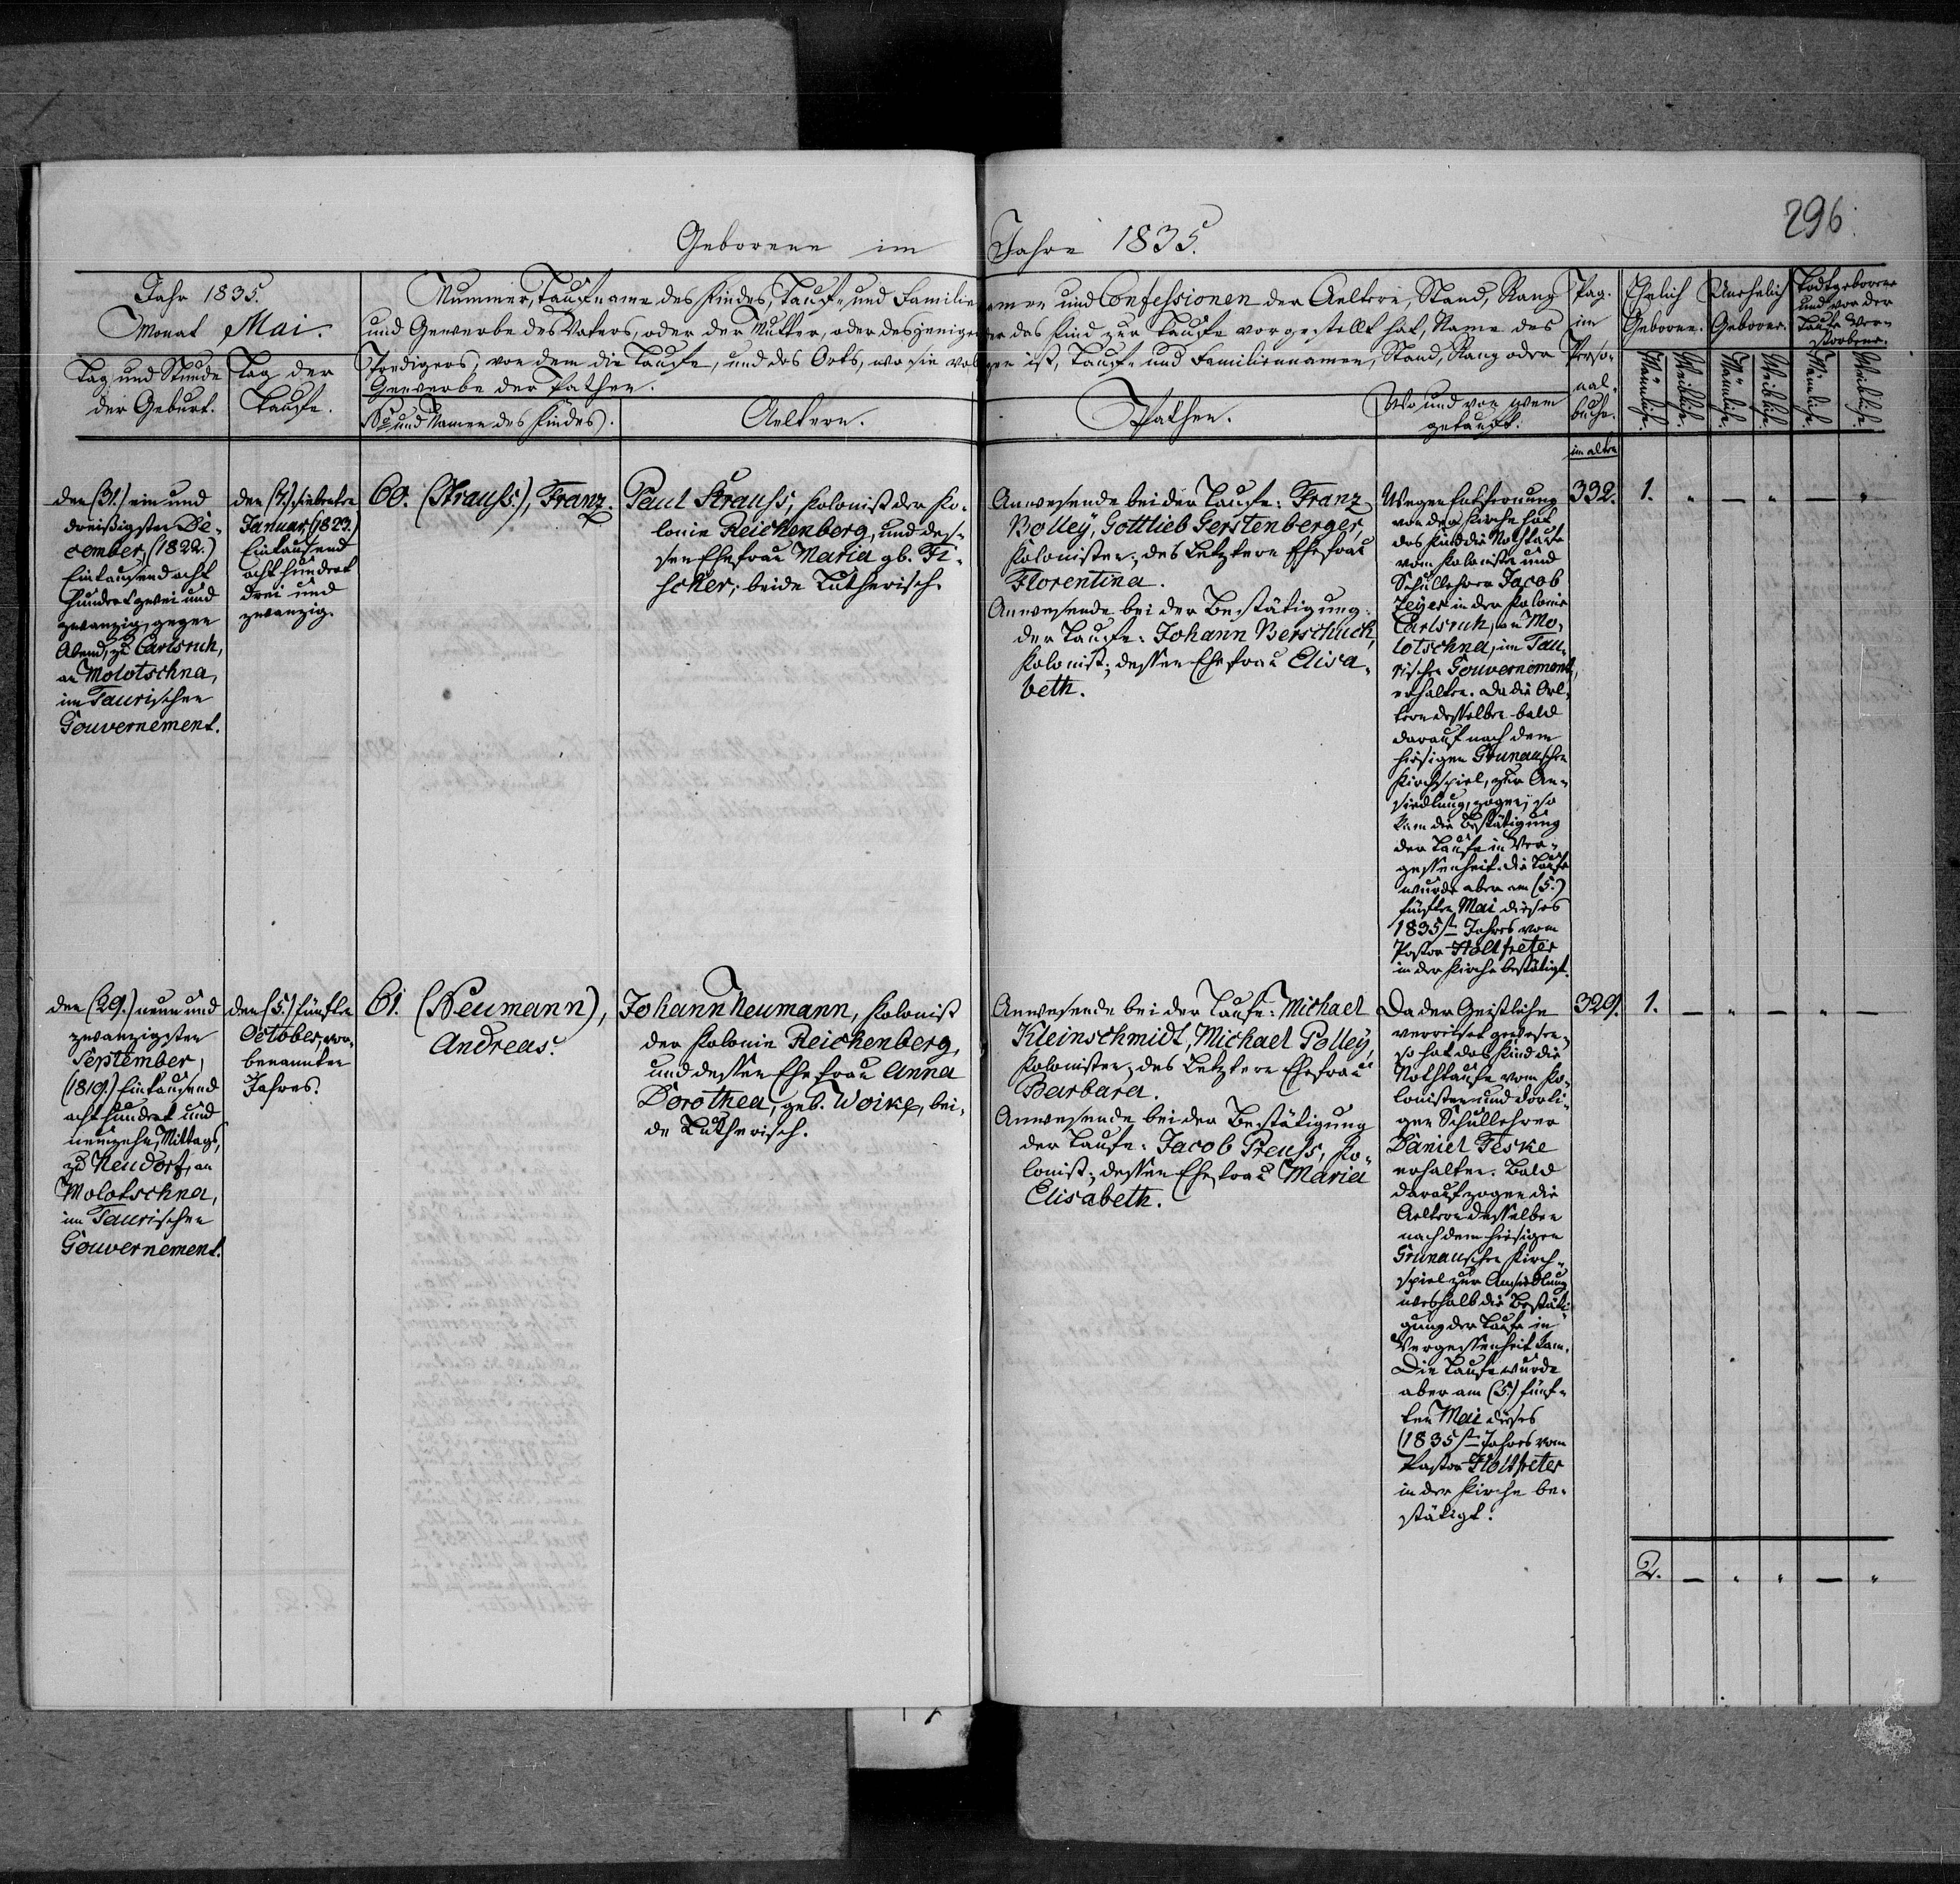 296.
Geborene im Jahre 1835.
Jahr 1835.
Monat Mai.
Tag und Stunde
der Geburt.
Tag der
Taufe.
Nummer, Taufname des Kindes, Tauf- und Familiennamen und Confessionen der Aeltern, Stand, Rang
und Gewerbe des Vaters, oder der Mutter, oder desjenigen der das Kind zur Taufe vorgestellt hat, Name des
Predigers, von dem die Taufe, und des Orts, wo sie vollzogen ist, Tauf- und Familiennamen, Stand, Rang oder
Gewerbe der Pathen.
No und Namen des Kindes.
Aeltern.
Pathen.
Wo und von wem
getauft.
Pag.
im
Perso-
nal-
buche.
Ehelich
Geborne.
Unehelich
Geborne.
Todtgeborene
und vor der
Taufe Ver-
storbene.
Männliche.
Weibliche.
Männliche.
Weibliche.
Männliche.
Weibliche.
im alten
den (31.) ein und
dreißigsten De-
cember, (1822.)
Eintausend acht
hundert zwei und
zwanzig, gegen
Abend, zu Carlsruh,
an Molotschna,
im Taurischen
Gouvernement.
den (7.) siebenten
Januar, (1823.)
Eintausend
acht hundert
drei und
zwanzig.
60. (Strauß.), Franz.
Paul Strauß, Kolonist der Ko-
lonie Reichenberg, und des-
sen Ehefrau Maria gb. Fi-
scher; beide Lutherisch.
Anwesende bei der Taufe: Franz
Bolley, Gottlieb Gerstenberger,
Kolonisten; des Letztern Ehefrau
Florentina.
Anwesende bei der Bestätigung
der Taufe: Johann Berschuck,
Kolonist; dessen Ehefrau Elisa-
beth.
Wegen Entfernung
von der Kirche hat
das Kind die Nothtaufe
vom Kolonisten und
Schullehrer Jacob
Zeyer in der Kolonie
Carlsruh, an Mo-
lotschna, im Tau-
rischen Gouvernement,
erhalten. Da die Ael-
tern desselben bald
darauf nach dem
hiesigen Grunauschen
Kirchspiel, zur An-
siedlung, zogen, so
kam die Bestätigung
der Taufe in Ver-
gessenheit. Die Taufe
wurde aber am (5.)
fünften Mai dieses
1835sten Jahres vom
Pastor Holtfreter
in der Kirche bestätigt.
332. 1. " — " — "
den (29.) neun und
zwanzigsten
September,
(1819.) Eintausend
acht hundert und
neunzehn, Mittags,
zu Neudorf, an
Molotschna,
im Taurischen
Gouvernement.
den (5.) fünften
October, vor-
benannten
Jahres.
61. (Neumann),
Andreas.
Johann Neumann, Kolonist
der Kolonie Reichenberg,
und dessen Ehefrau Anna
Dorothea, geb. Woike, bei-
de Lutherisch.
Anwesende bei der Taufe: Michael
Kleinschmidt, Michael Polley,
Kolonisten; des Letztern Ehefrau
Barbara.
Anwesende bei der Bestätigung
der Taufe: Jacob Preuß, Ko-
lonist; dessen Ehefrau Maria
Elisabeth.
Da der Geistliche
verreiset gewesen,
so hat das Kind die
Nothtaufe vom Ko-
lonisten und dorti-
gen Schullehrer
Daniel Teske
erhalten. Bald
darauf zogen die
Aeltern desselben
nach dem hiesigen
Grunauschen Kirch-
spiel zur Ansiedlung
weshalb die Bestäti-
gung der Taufe in
Vergessenheit kam.
Die Taufe wurde
aber am (5.) fünf-
ten Mai dieses
(1835sten Jahres vom
Pastor Holtfreter
in der Kirche be-
stätigt.
329. 1. — " — " —
2. — " " — "